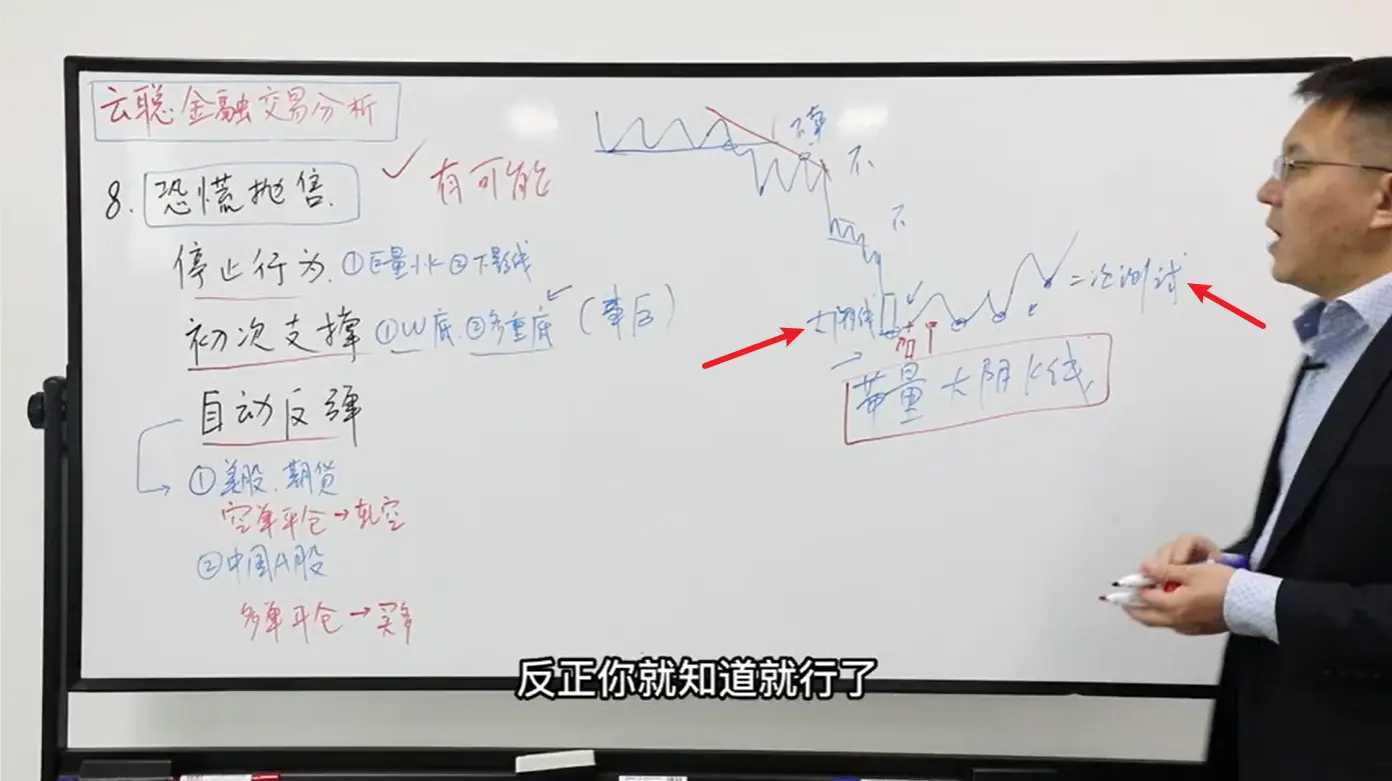 云聪金融交易分析
8. 恐慌抛售
有可能
停止行为. ①巨量小K ②下影线
初次支撑 ①W底. ②多重底 (事后)
自动反弹
①美股.期货
空单平仓→轧空
②中国A股
多单平仓→买多
不
不
二次测试
大阴线
带量大阴K线
反正你就知道就行了